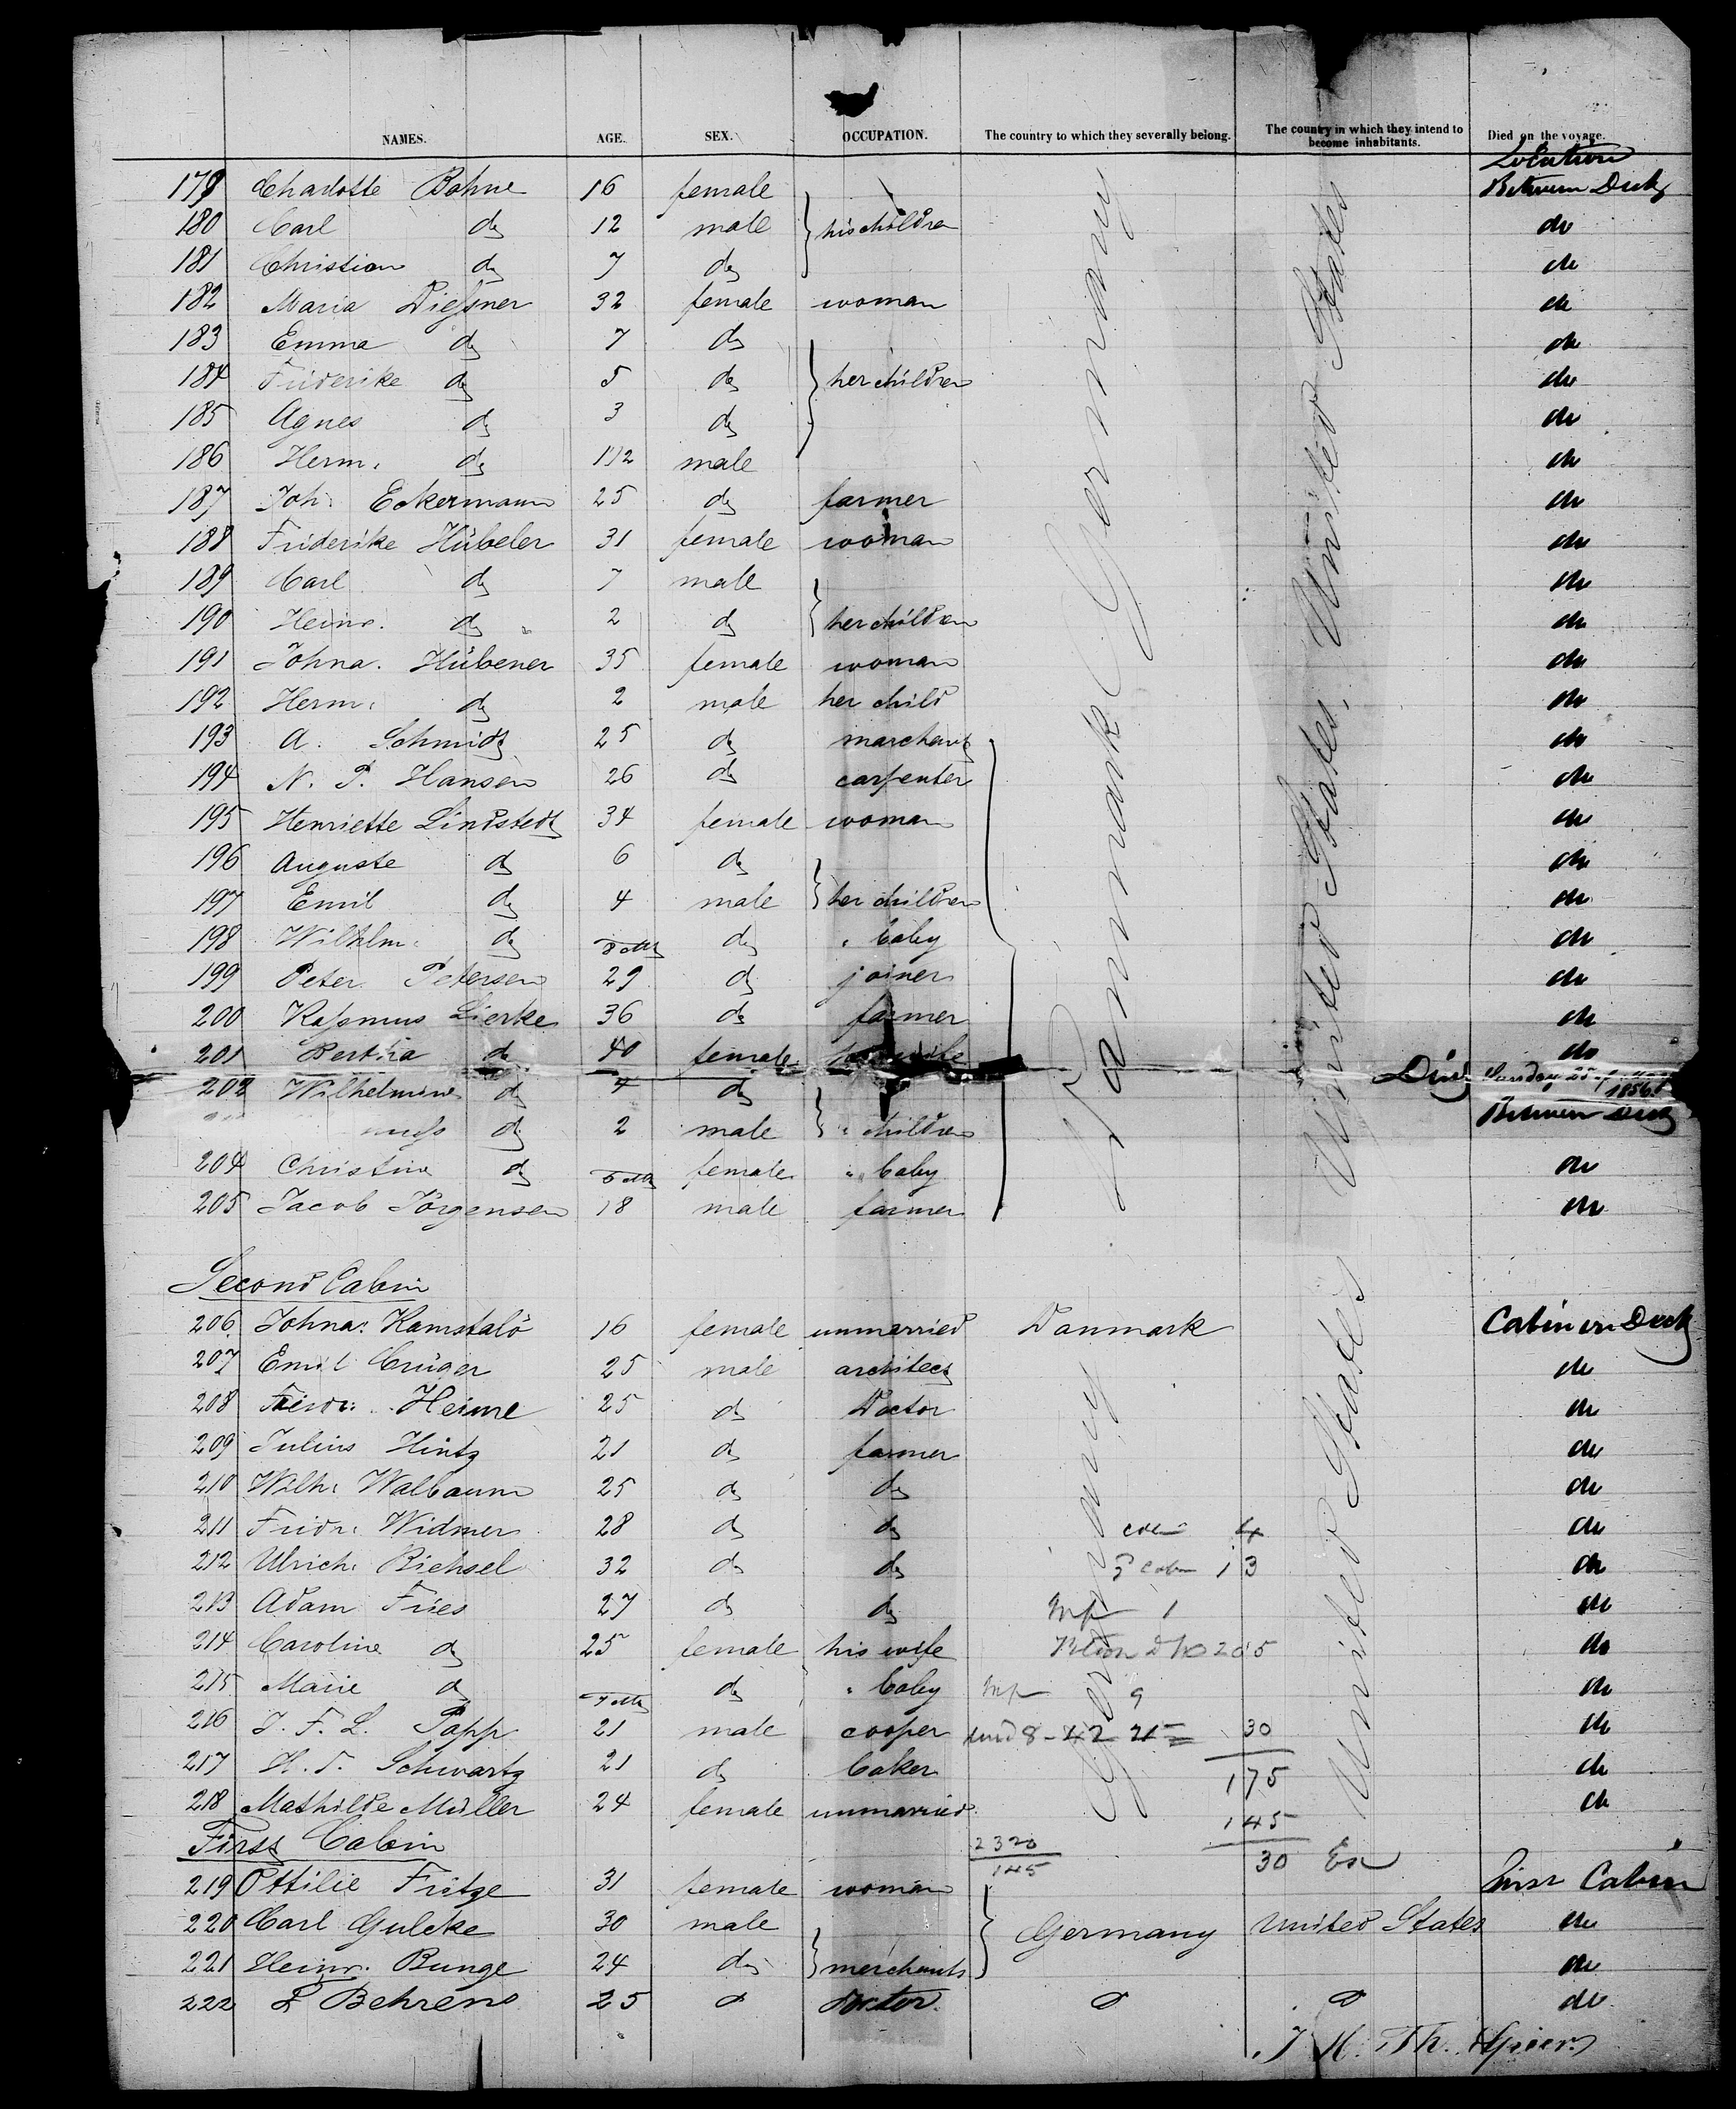 NAMES. AGE. SEX. OCCUPATION. The country to which they severally belong. The country in which they intend to become inhabitants. Died on the voyage.
Location
179 Charlotte Bohne 16 female Between Deck
180 Carl do 12 male his children do
181 Christian do 7 do do
182 Maria Dießner 32 female woman do
183 Emma do 7 do do
184 Friderike do 5 do her children do
185 Agnes do 3 do do
186 Herm: do 1 1/2 male do
187 Joh: Eckermann 25 do farmer do
188 Friderike Hübeler 31 female woman do
189 Carl do 7 male do
190 Heinr. do 2 do her children do
191 Johna. Hübener 35 female woman do
192 Herm: do 2 male her child do
193 A. Schmidt 25 do marchant do
194 N. P. Hansen 26 do carpenter do
195 Henriette Lindstedt 34 female woman do
196 Auguste do 6 do do
197 Emil do 4 male her children do
198 Wilhlm: do do " baby do
199 Peter Petersen 29 do joiner do
200 Raßmus Lierke 36 do farmer do
201 Bertha do 40 female wife do
202 Wilhelmine do 4 do Died Sunday 25 1856
do 2 male " children Between Deck
204 Christine do female " baby do
205 Jacob Jörgensen 18 male farmer do
Danmark Germany
United States, United States
Second Cabin
206 Johna: Kamstalö 16 female unmarried Danmark Cabin on Deck
207 Emil Crüger 25 male architect do
208 Fridr: Heime 25 do Doctor do
209 Julius Hintz 21 do farmer do
210 Wilh: Walbaum 25 do do do
211 Fridr: Widmer 28 do do do
212 Ulrich: Bichsel 32 do do 13 do
213 Adam Fries 27 do do 1 do
214 Caroline do 25 female his wife 205 do
215 Marie do do " baby 9 do
216 J. F. L. Popp 21 male cooper 30 do
217 H. T. Schwartz 21 do baker 175 do
218 Mathilde Müller 24 female unmarried 145 do
Germany
United States
First Cabin 2320 145 30
219 Ottilie Fritze 31 female woman First Cabin
220 Carl Gulcke 30 male Germany United States do
221 Heinr. Bunge 24 do merchants do
222 L Behrens 25 do doctor do do do
J. H. Th.